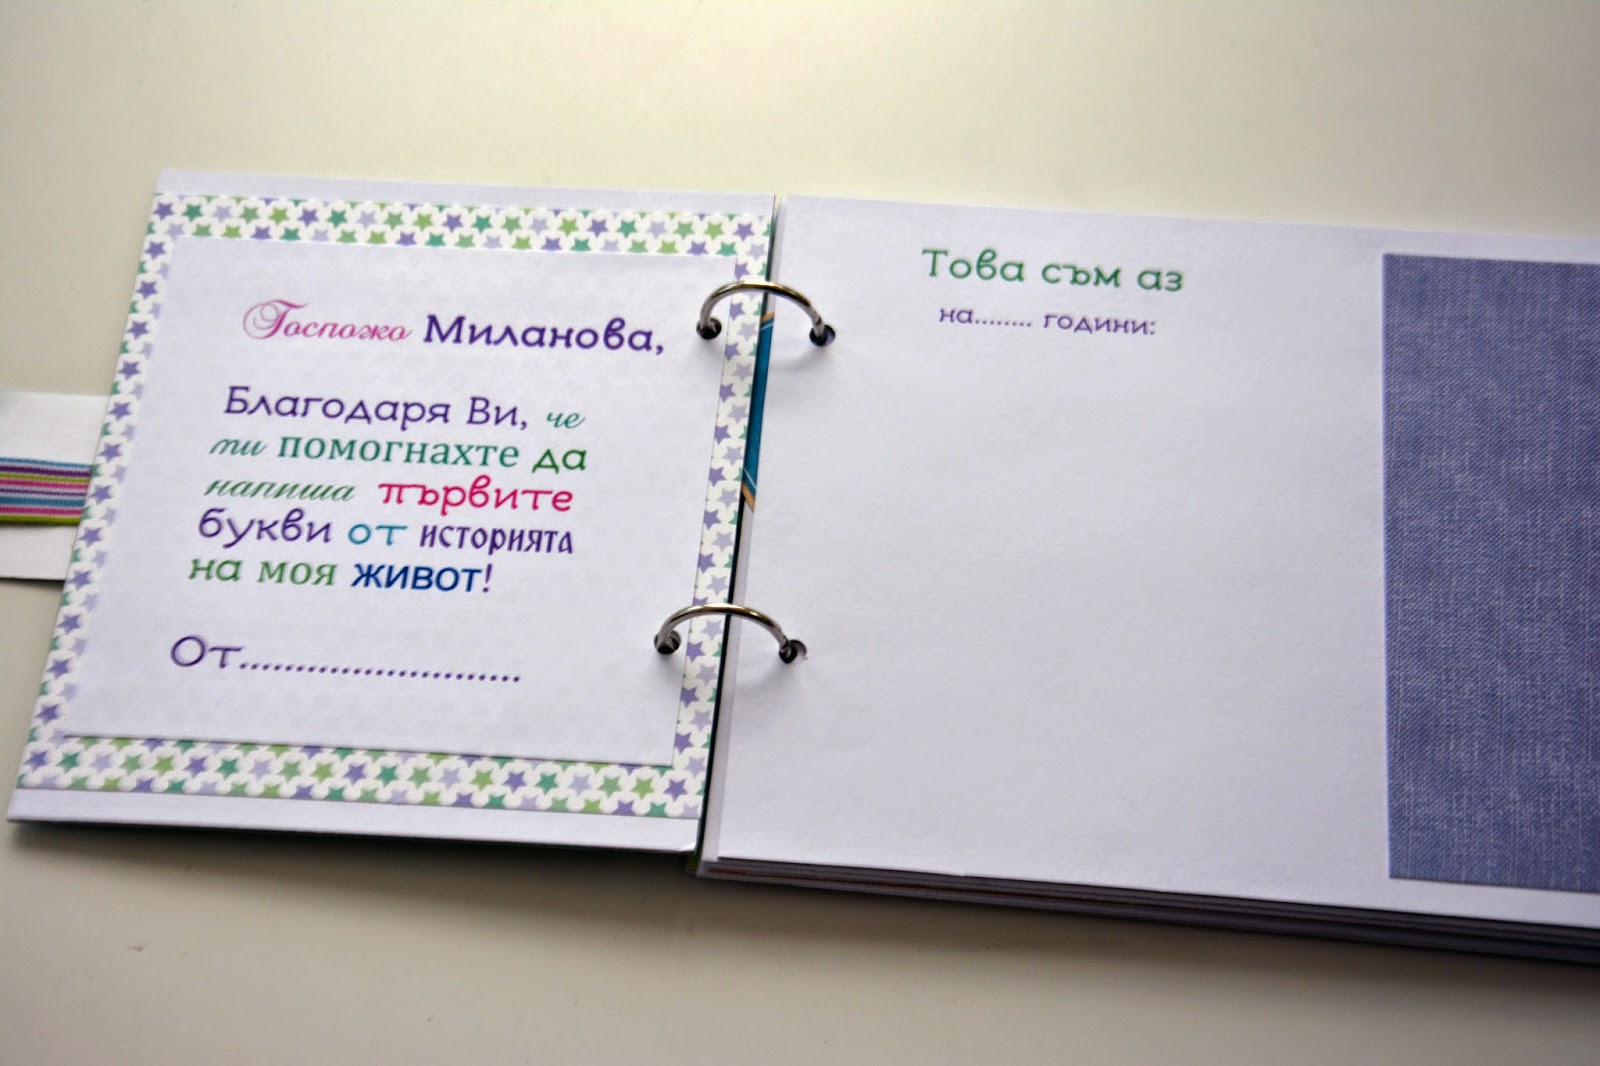 Госпожо Миланова,
Благодаря Ви, че
ми помогнахте да
напиша първите
букви от историята
на моя живот!
От..........................
Това съм аз
на........ години: